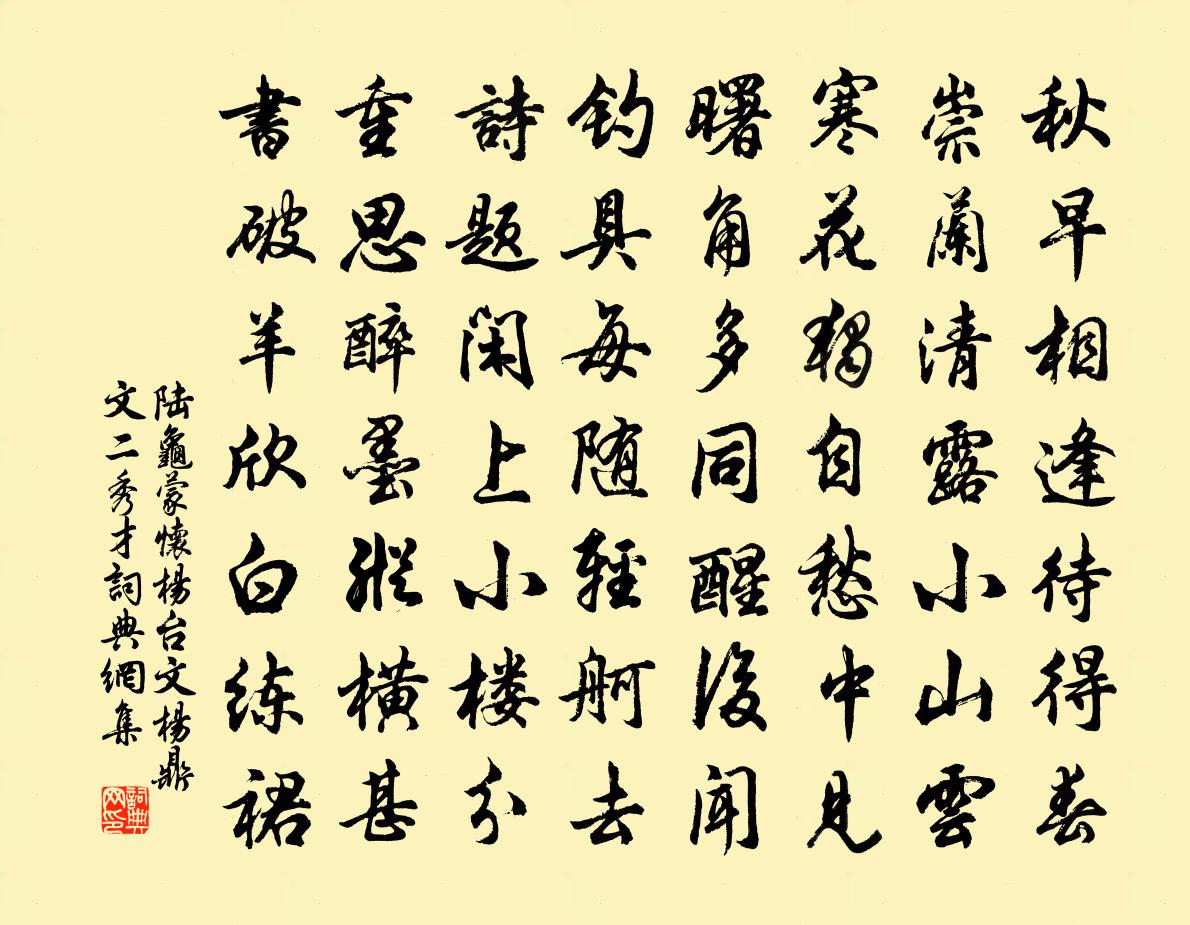 秋早相逢待得春
崇蘭清露小山雲
寒花獨自愁中見
曙角多同醒後闻
钓具每随輕舸去
詩题闲上小楼分
重思醉墨縱橫甚
書破羊欣白练裙
陆龜蒙懷楊台文楊鼎
文二秀才詞典網集
詞典网印